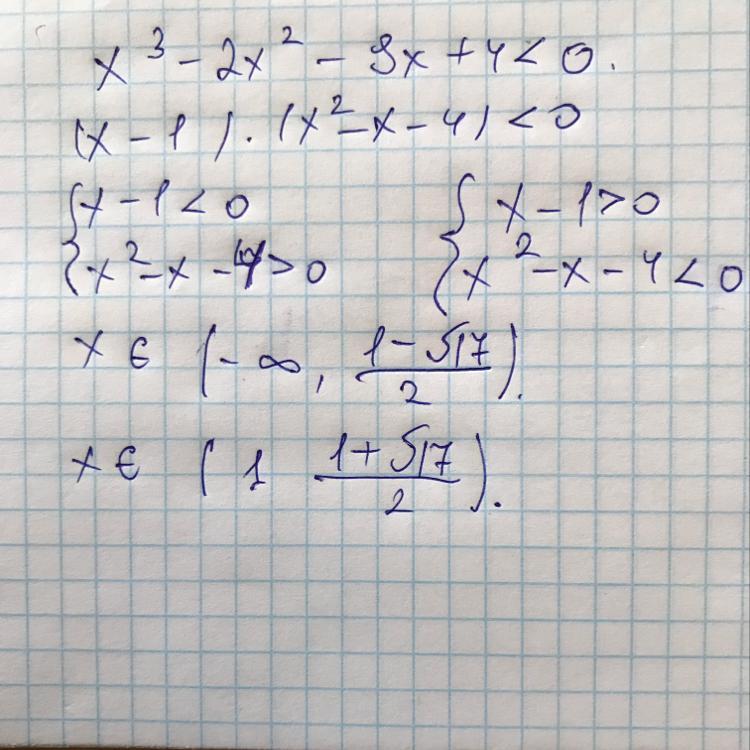 x³ - 2x² - 3x + 4 < 0.
(x - 1) · (x² - x - 4) < 0
{ x - 1 < 0 { x - 1 > 0
{ x² - x - 4 > 0 { x² - x - 4 < 0
x ∈ (-∞, (1 - √17)/2).
x ∈ (1 (1 + √17)/2).